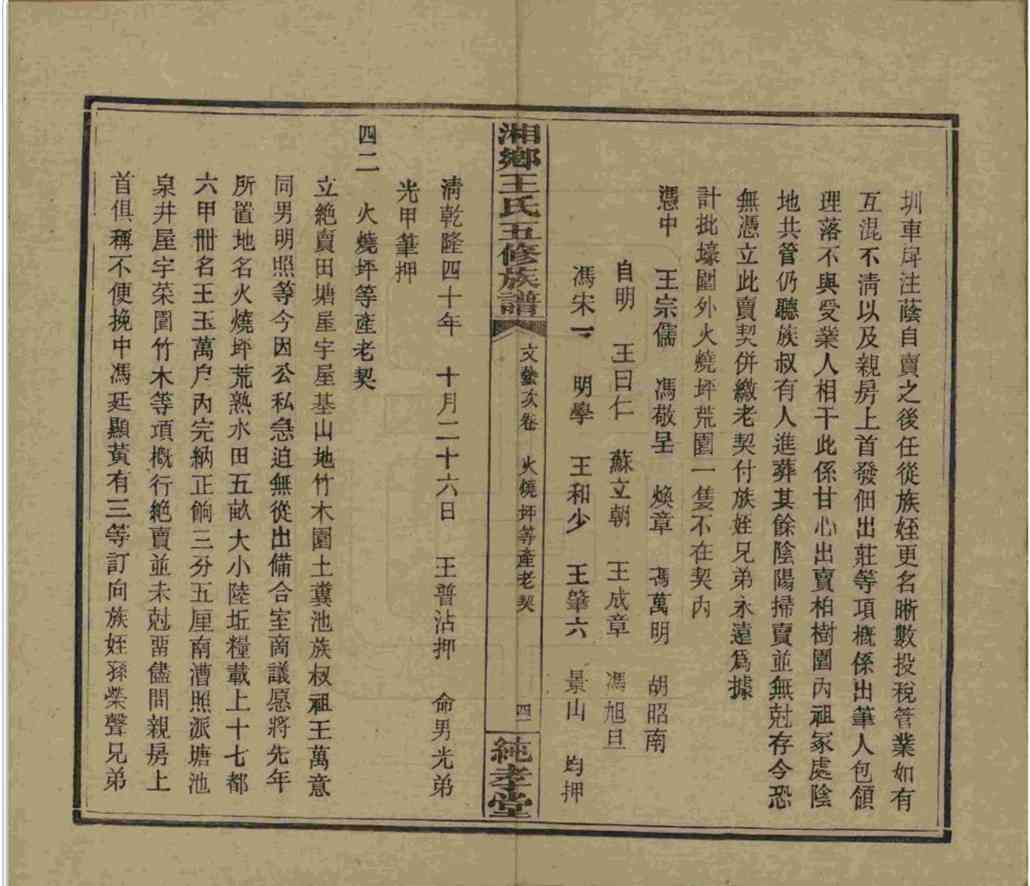 圳車戽注蔭自賣之後任從族姪更名晰數投稅管業如有
互混不清以及親房上首發佃出莊等項概係出筆人包領
理落不與受業人相干此係甘心出賣柏樹園內祖冢處陰
地共管仍聽族叔有人進葬其餘陰陽掃賣並無尅存今恐
無憑立此賣契併繳老契付族姪兄弟永遠爲據
計批壕圍外火燒坪荒園一隻不在契內
憑中 王宗儒 馮敬呈 煥章 馮萬明 胡昭南
自明 王曰仁 蘇立朝 王成章 馮旭旦
馮宋一 明學 王和少 王肇六 景山 均押
湘鄉王氏五修族譜 文埶次卷 火燒坪等產老契 四二 純孝堂
清乾隆四十年 十月二十六日 王普沾押 命男光弟
光甲筆押
四二 火燒坪等產老契
立絶賣田塘屋宇屋基山地竹木園土糞池族叔祖王萬意
同男明照等今因公私急迫無從出備合室商議愿將先年
所置地名火燒坪荒熟水田五畝大小陸坵糧載上十七都
六甲冊名王玉萬户內完納正餉三分五厘南漕照派塘池
泉井屋宇菜園竹木等項概行絶賣並未尅畱儘問親房上
首俱稱不便挽中馮廷顯黃有三等訂向族姪孫榮聲兄弟